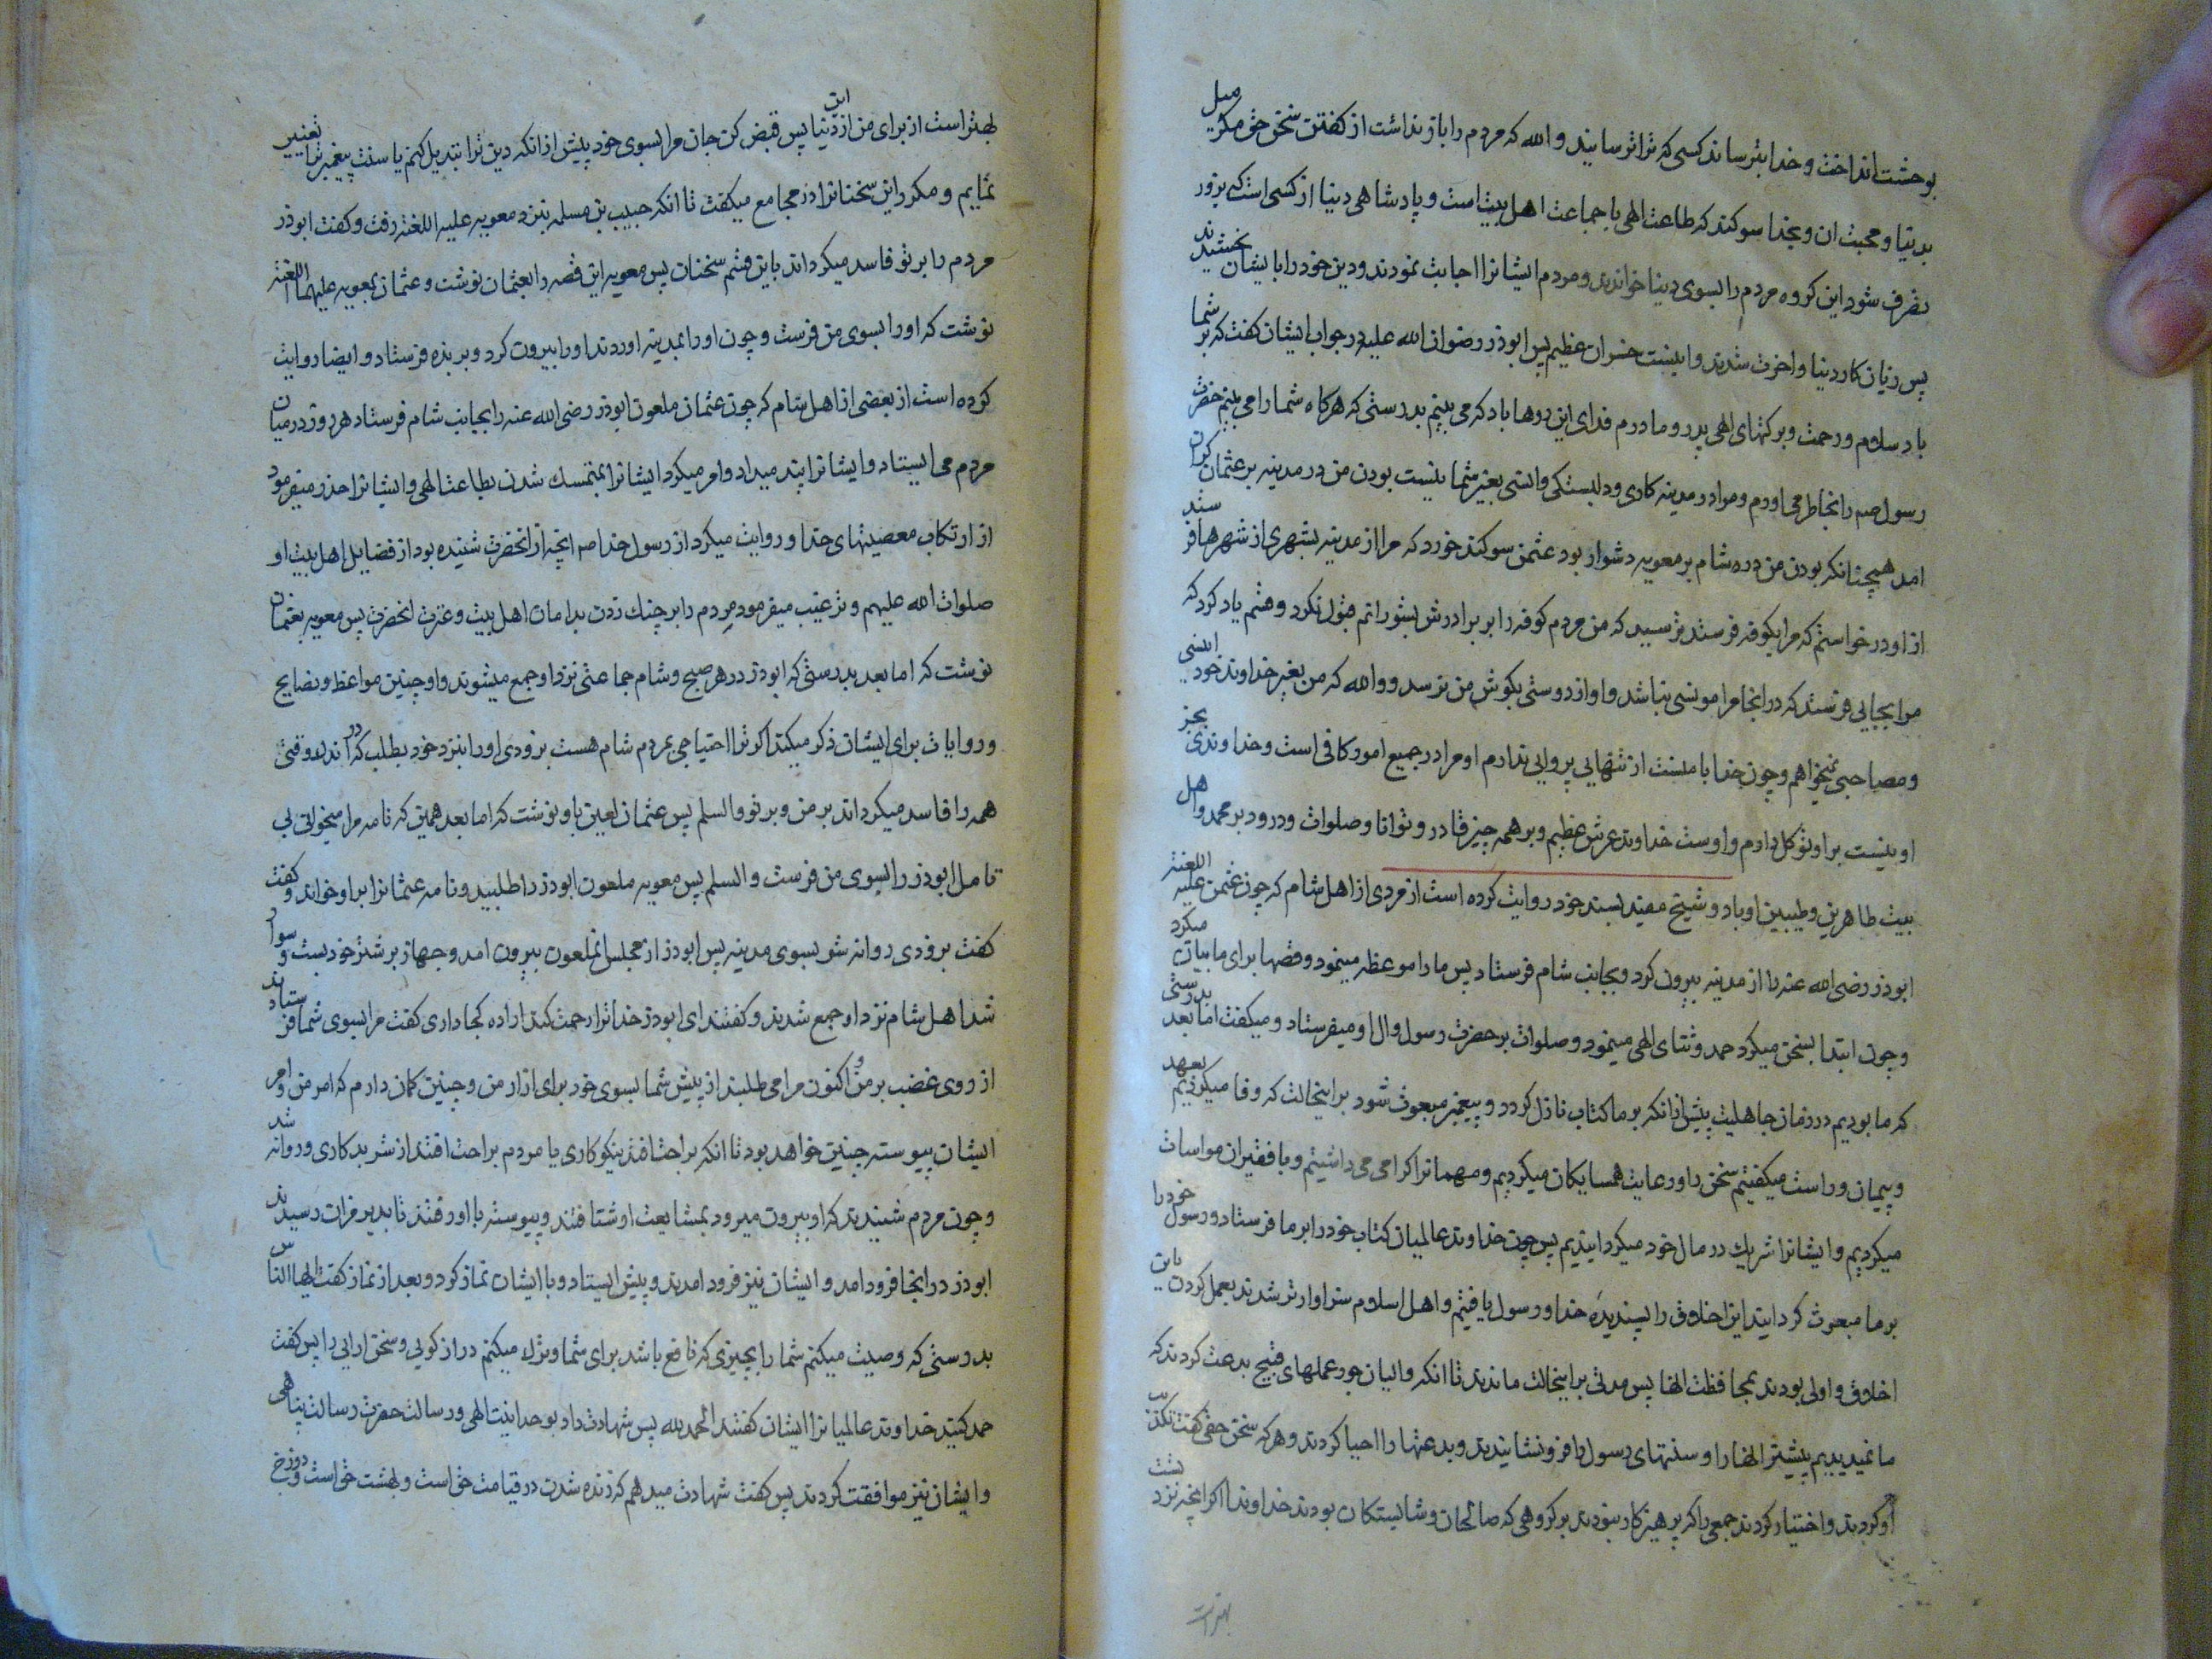 بوحشت انداخت و خدا بترساند کسی که ترا ترسانید و الله که مردم را باز نداشت از کفتن سخن حق مکر میل
بدنیا و محبت ان و بخدا سوکند که طاعت الهی با جماعت اهل بیت است و پادشاهی دنیا از کسی است که بزور
تصرف شود این کروه مردم را بسوی دنیا خواندند و مردم ایشانرا اجابت نمودند و دین خود را بایشان بخشیدند
پس زیان کار دنیا و اخرت شدند و اینست خسران عظیم پس ابوذر رضوان الله علیه در جواب ایشان کفت که بر شما
باد سلام و رحمت و برکتهای الهی پدر و مادرم فدای این روها باد که می بینم بدرستی که هرکاه شما را می بینم حضرت
رسول صم را بخاطر می اورم و مرا در مدینه کاری و دلبستکی و انسی بغیر شما نیست بودن من در مدینه بر عثمان کران
امد همچنانکه بودن من در شام بر معویه دشوار بود عثمن سوکند خورد که مرا از مدینه بشهری از شهرها فرستد
از او درخواستم که مرا بکوفه فرستد ترسید که من مردم کوفه را بر برادرش بشورانم قبول نکرد و قسم یاد کرد که
مرا بجایی فرستد که در انجا مرا مونسی نباشد و اواز دوستی بکوش من نرسد و والله که من بغیر خداوند خود انیسی
و مصاحبی نمیخواهم و چون خدا با منست از تنهایی پروایی ندارم او مرا در جمیع امور کافی است و خداوندی بجز
او نیست بر او توکل دارم و اوست خداوند عرش عظیم و بر همه چیز قادر و توانا و صلوات و درود بر محمد و اهل
بیت طاهرین و طیبین او باد و شیخ مفید بسند خود روایت کرده است از مردی از اهل شام که چون عثمن علیه اللعنة
ابوذر رضی الله عنه را از مدینه بیرون کرد و بجانب شام فرستاد پس ما را موعظه مینمود و قصها برای ما بیان میکرد
و چون ابتدا بسخن میکرد حمد و ثنای الهی مینمود و صلوات بر حضرت رسول و ال او میفرستاد و میکفت اما بعد بدرستی
که ما بودیم در زمان جاهلیت پیش از انکه بر ما کتاب نازل کردد و پیغمبر مبعوث شود بر اینحالت که وفا میکردیم بعهد
و پیمان و راست میکفتیم سخن را و رعایت همسایکان میکردیم و مهمانرا کرامی می داشیتم و با فقیران مواسات
میکردیم و ایشانرا شریک در مال خود میکردانیدیم پس چون خداوند عالمیان کتاب خود را بر ما فرستاد و رسول خود را
بر ما مبعوث کردانید این اخلاق را پسندیده خدا و رسول یافیتم و اهل اسلام سزاوارتر شدند بعمل کردن باین
اخلاق و اولی بودند بمحافظت انها پس مدتی بر اینحالت ماندند تا انکه والیان جور عملهای قبیح بدعت کردند که
ما نمیدیدیم پیشتر انها را و سنتهای رسول را فرو نشانیدند و بدعتها را احیا کردند و هر که سخن حقی کفت تکذیب
او کردند و اختیار کردند جمعی را که پرهیزکار نبودند بر کروهی که صالحان و شایستکان بودند خداوندا اکر انچه نزد تست
بهتر است
بهتر است از برای من از دنیا پس قبض کن جان مرا بسوی خود پیش از انکه دین ترا تبدیل کنم یا سنت پیغمبر ترا تغییر
نمایم و مکرر این سخنانرا در مجامع میکفت تا انکه حبیب بن مسلمه بنزد معویه علیه اللعنة رفت و کفت ابوذر
مردم را بر تو فاسد میکرداند باین قسم سخنان پس معویه این قصه را بعثمان نوشت و عثمان بمعویه علیهما اللعنة
نوشت که او را بسوی من فرست و چون او را بمدینه اوردند او را بیرون کرد و بربذه فرستاد و ایضا روایت
کرده است از بعضی از اهل شام که چون عثمان ملعون ابوذر رضی الله عنه را بجانب شام فرستاد هر روز در میان
مردم می ایستاد و ایشانرا پند میداد و امر میکرد ایشانرا بمتمسک شدن بطاعت الهی و ایشانرا حذر میفرمود
از ارتکاب معصیتهای خدا و روایت میکرد از رسول خدا صم انچه از انحضرت شنیده بود از فضایل اهل بیت او
صلوات الله علیهم و ترغیب میفرمود مردم را بر چنک زدن بدامان اهل بیت و عترت انحضرت پس معویه بعثمان
نوشت که اما بعد بدرستی که ابوذر در هر صبح و شام جماعتی نزد او جمع میشوند و او چنین مواعظ و نصایح
و روایات برای ایشان ذکر میکند اکر ترا احتیاجی بمردم شام هست بزودی او را بنزد خود بطلب که در اندک وقتی
همه را فاسد میکرداند بر من و بر تو والسلم پس عثمان لعین باو نوشت که اما بعد همین که نامه مرا میخوانی بی
تامل ابوذر را بسوی من فرست و السلم پس معویه ملعون ابوذر را طلبید و نامه عثمانرا بر او خواند و کفت
کفت بزودی روانه شو بسوی مدینه پس ابوذر از مجلس انملعون بیرون امد و جهاز بر شتر خود بست و سوار
شد اهل شام نزد او جمع شدند و کفتند ای ابوذر خدا ترا رحمت کند اراده کجا داری کفت مرا بسوی شما فرستادند
از روی غضب بر من و اکنون مرا می طلبند از پیش شما بسوی خود برای ازار من و چنین کمان دارم که امر من و امر
ایشان پیوسته چنین خواهد بود تا انکه براحت افتد نیکوکاری یا مردم براحت افتند از شر بدکاری و روانه شد
و چون مردم شنیدند که او بیرون میرود بمشایعت او شتافتند و پیوسته با او رفتند تا بدیر مران رسیدند
ابوذر در انجا فرود امد و ایشان نیز فرود امدند و پیش ایستاد و با ایشان نماز کرد و بعد از نماز کفت ایها الناس
بدرستی که وصیت میکنم شما را بچیزی که نافع باشد برای شما و ترک میکنم دراز کویی و سخن ارایی را پس کفت
حمد کنید خداوند عالمیانرا ایشان کفتند الحمد لله پس شهادت داد بوحدانیت الهی و رسالت حضرت رسالت پناهی
و ایشان نیز موافقت کردند پس کفت شهادت میدهم که زنده شدن در قیامت حق است و بهشت حق است و دوزخ